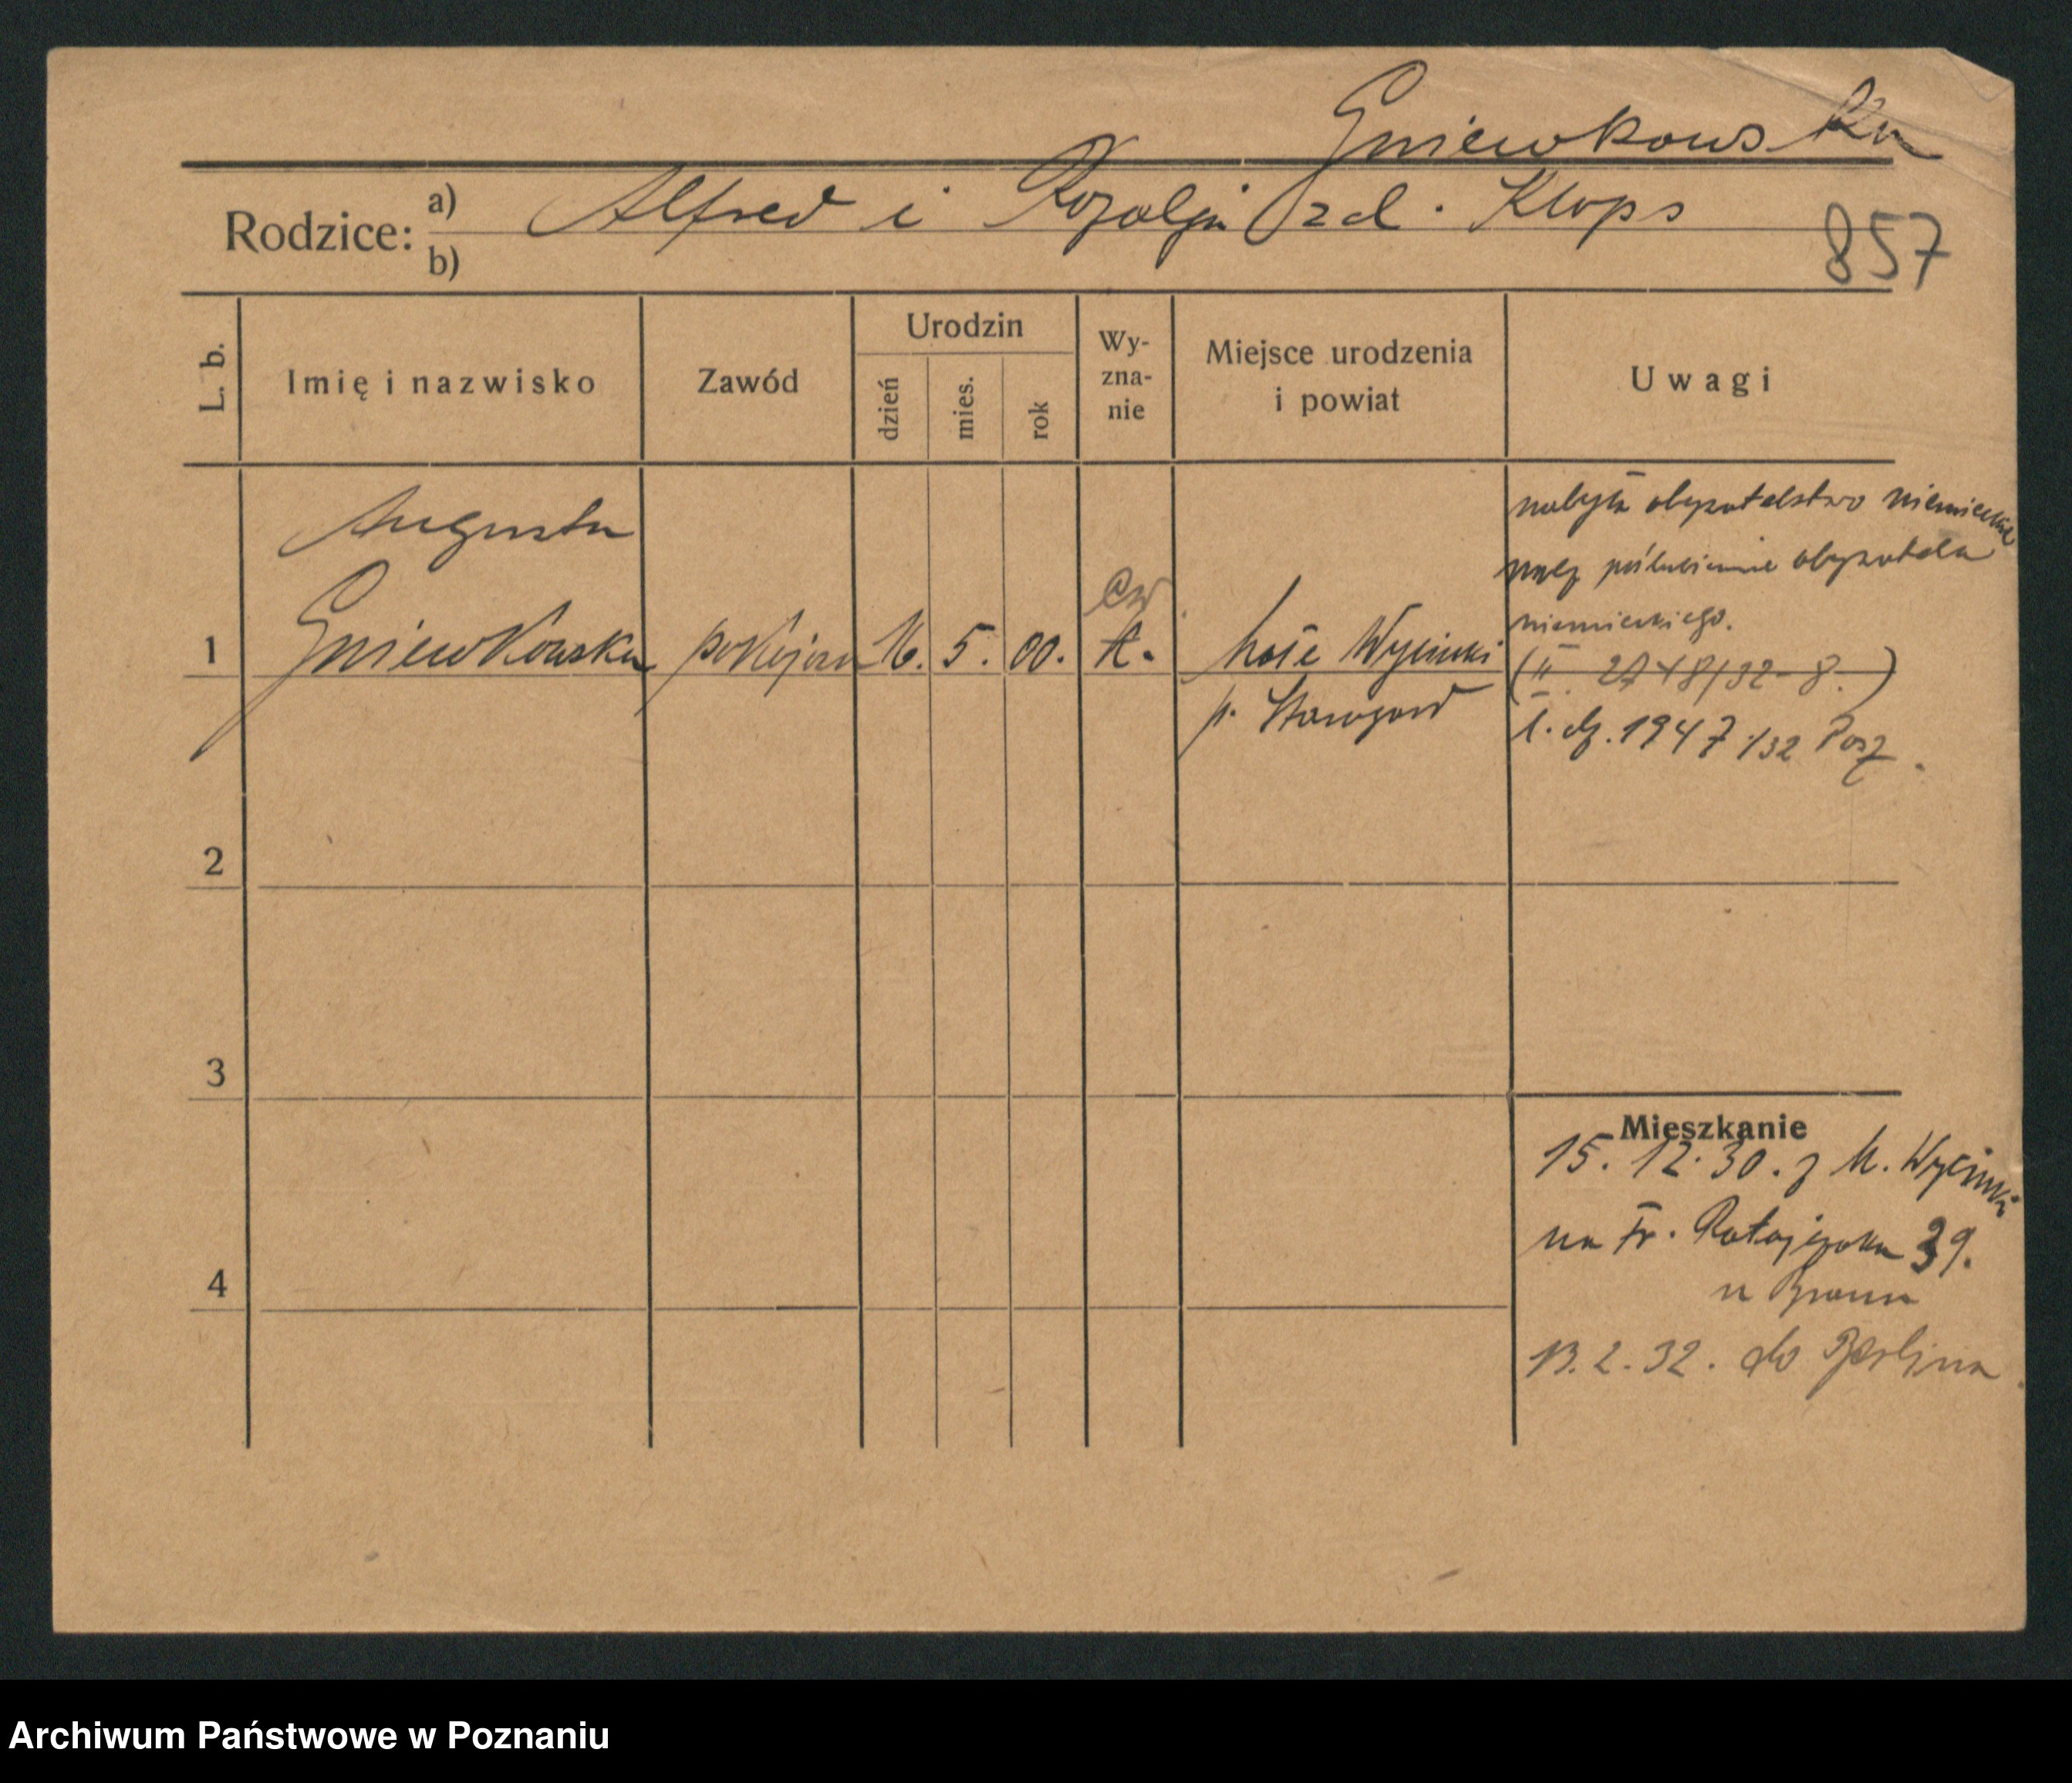 Gniewkowska
Rodzice: a) Alfred i Rozalja zd. Klops
b)
857
L. b.
Imię i nazwisko
Zawód
Urodzin
dzień
mies.
rok
Wy-
zna-
nie
Miejsce urodzenia
i powiat
Uwagi
Augusta
1 Gniewkowska
pokojowa
16. 5. 00.
ew
k.
Małe Wycinki
p. Starogard
nabyła obywatelstwo niemieckie
przez poślubienie obywatela
niemieckiego.
(II. 2748/32-8.)
l. dz. 1947/32 Posz.
2
3
4
Mieszkanie
15. 12. 30. z M. Wycinki
na Fr. Ratajczaka 39.
u Braun
13. 2. 32. do Berlina
Archiwum Państwowe w Poznaniu